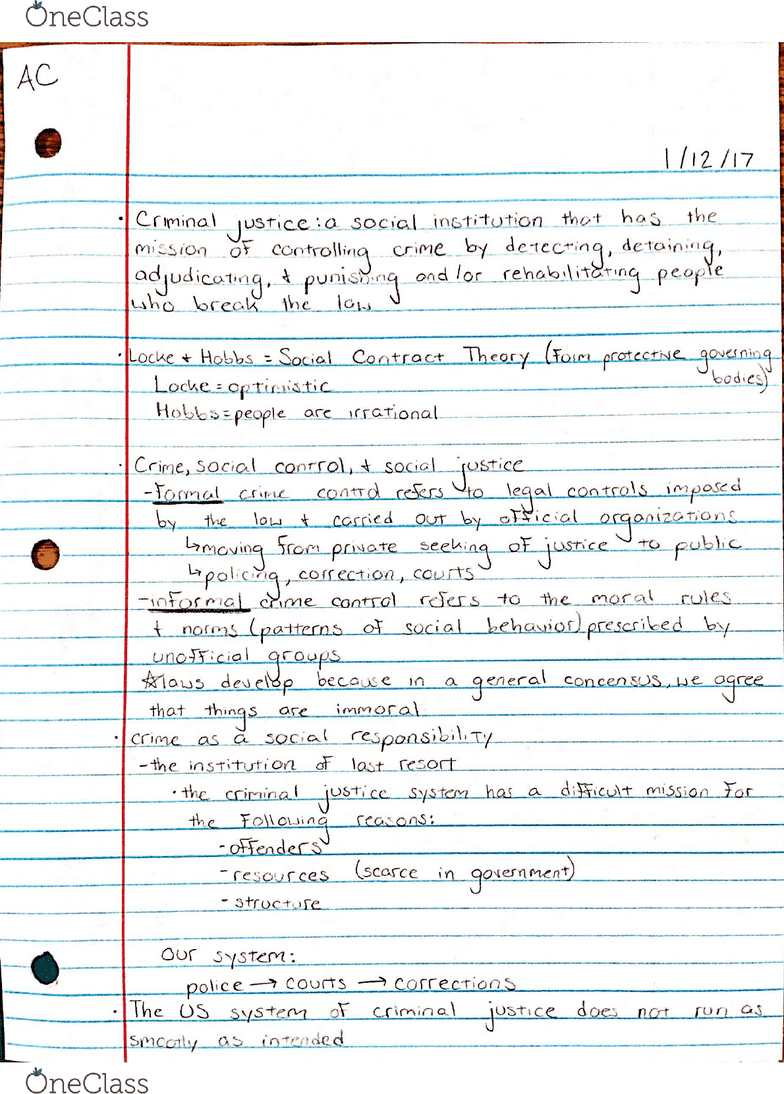 OneClass
AC
1/12/17
· Criminal justice: a social institution that has the
mission of controlling crime by detecting, detaining,
adjudicating, + punishing and/or rehabilitating people
who break the law
· Locke + Hobbs = Social Contract Theory (form protective governing
bodies)
Locke = optimistic
Hobbs = people are irrational
· Crime, social control, + social justice
- Formal crime control refers to legal controls imposed
by the law + carried out by official organizations
↳ moving from private seeking of justice to public
↳ policing, correction, courts
- informal crime control refers to the moral rules
+ norms (patterns of social behavior) prescribed by
unofficial groups
☆ laws develop because in a general concensus, we agree
that things are immoral
· crime as a social responsibility
- the institution of last resort
· the criminal justice system has a difficult mission for
the following reasons:
- offenders
- resources (scarce in government)
- structure
Our system:
police → courts → corrections
· The US system of criminal justice does not run as
smootly as intended
OneClass